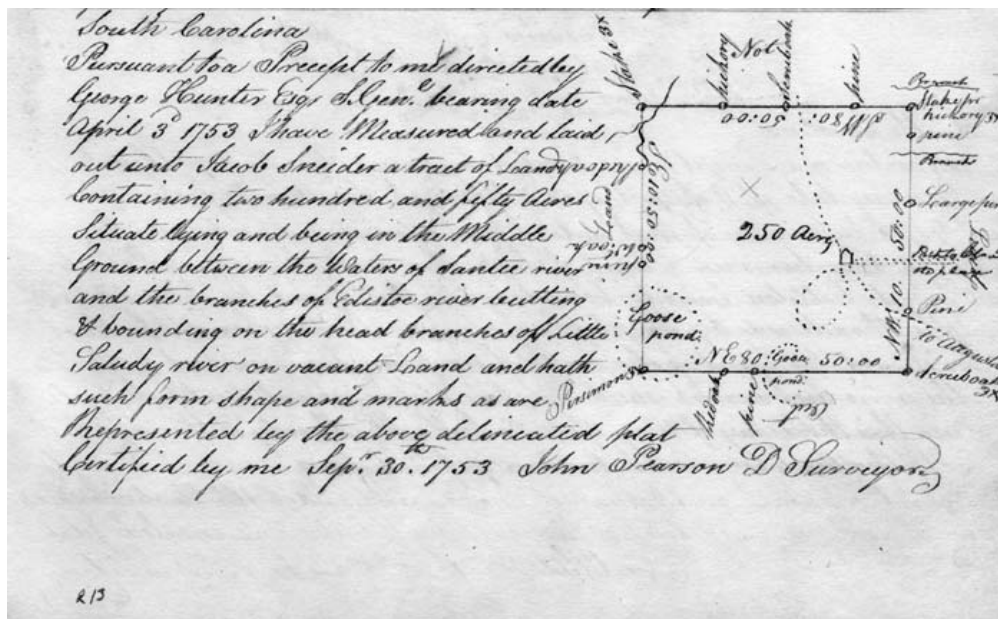 South Carolina
Pursuant to a Precept to me directed by
George Hunter Esqr S. Genl. bearing date
April 3d 1753 I have Measured and laid
out unto Jacob Sneider a tract of Land
Containing two hundred and fifty Acres
Situate lying and being in the Middle
Ground between the Waters of Santee river
and the branches of Edistoe river butting
& bounding on the head branches of Little
Saludy river on vacant Land and hath
such form shape and marks as are
Represented by the above delineated plat
Certified by me Sepr. 30th. 1753 John Pearson D Surveyor
Stake 3x
hickory
Not
pine
Branch
Stake for
hickory 3x
pine
Branch
50:00
Land
250 Acres
Pine
to Augusta
50:00
Goose
pond.
NE 80
Goose
pond.
50:00
Persimon
pine
R13